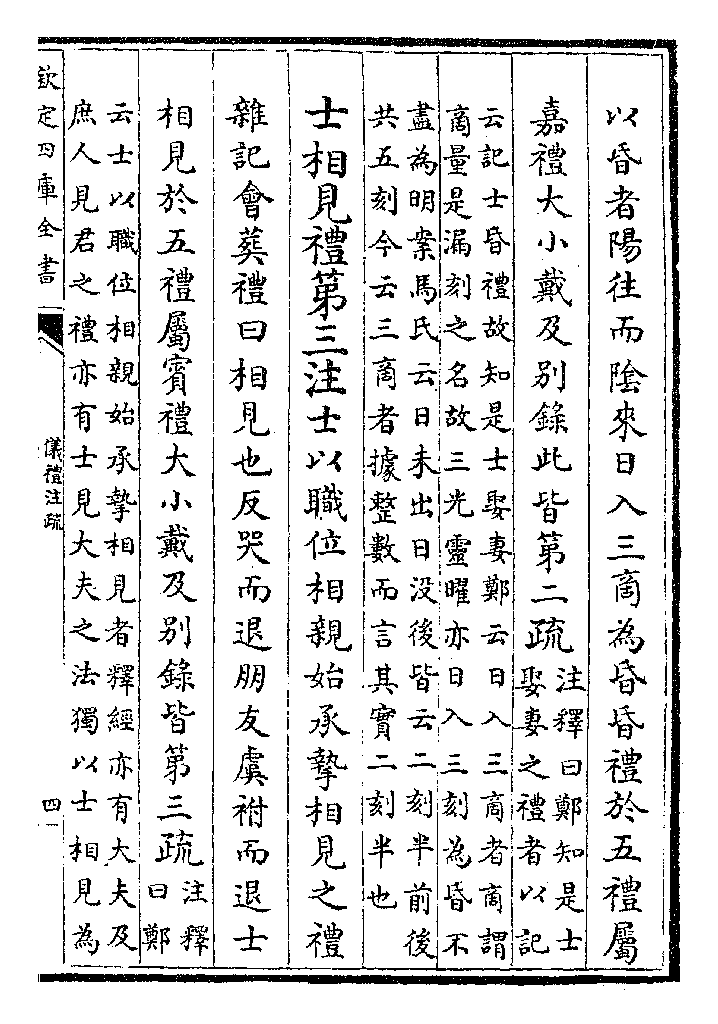 以昏者陽往而陰來日入三商為昏昏禮於五禮屬
嘉禮大小戴及别錄此皆第二疏
注釋曰鄭知是士
娶妻之禮者以記
云記士昏禮故知是士娶妻鄭云日入三商者商謂
商量是漏刻之名故三光靈曜亦日入三刻為昏不
盡為明案馬氏云日未出日没後皆云二刻半前後
共五刻今云三商者據整數而言其實二刻半也
士相見禮第三注士以職位相親始承摯相見之禮
雜記會葬禮曰相見也反哭而退朋友虞祔而退士
相見於五禮屬賓禮大小戴及别錄皆第三疏
注釋
曰鄭
云士以職位相親始承摯相見者釋經亦有大夫及
庶人見君之禮亦有士見大夫之法獨以士相見為
欽定四庫全書
儀禮注疏
四